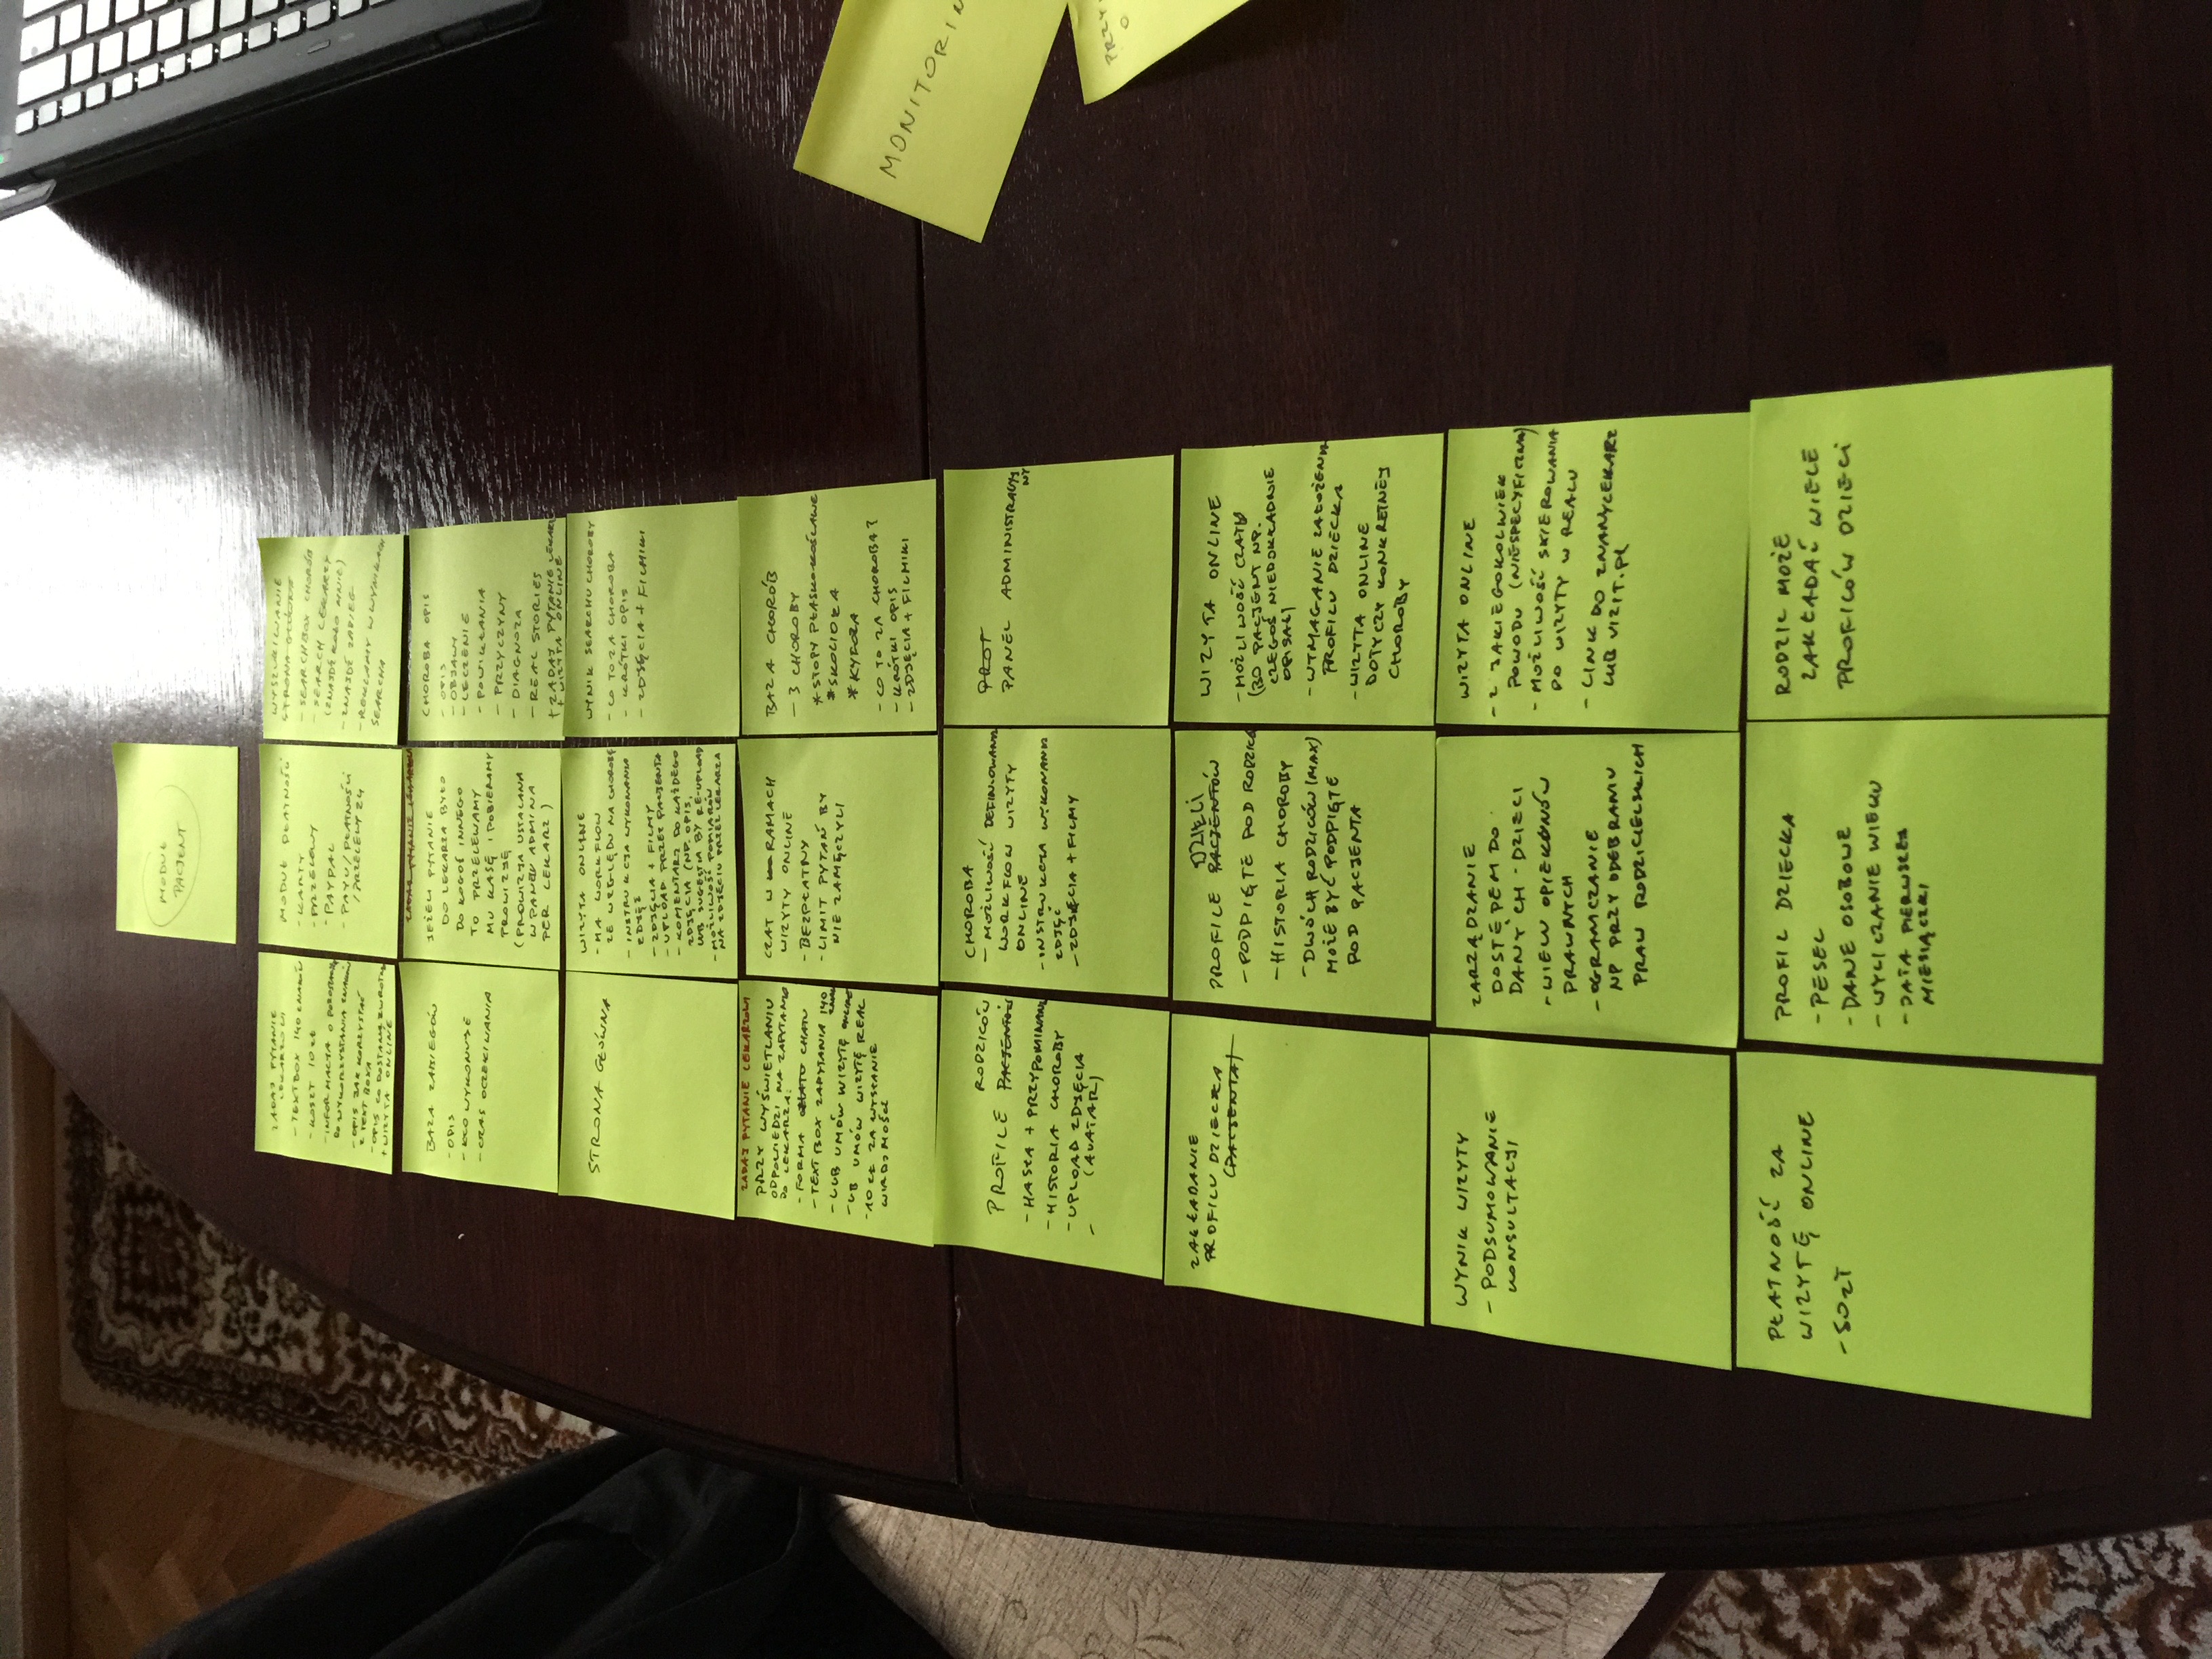 MODUŁ
PACJENT
ZADAJ PYTANIE
LEKARZOWI
- TEXTBOX 140 ZNAKÓW
- KOSZT 10 ZŁ
- INFORMACJA O
DO WYKORZYSTANIA ZNAKÓW
- OPIS JAK KORZYSTAĆ
Z TEXT BOXA
- OPIS CO DOSTANĘ
+ WIZYTA ONLINE
MODUŁ PŁATNOŚCI
- KARTY
- PRZELEWY
- PAYPAL
- PAYU/PŁATNOŚCI
/PRZELEWY 24
WYSZUKIWANIE
STRONA GŁÓWNA
- SEARCHBOX CHORÓB
- SEARCH LEKARZY
(ZNAJDŹ KOŁO MNIE)
- ZNAJDŹ ZABIEG
- REKLAMY W WYNIKACH
SEARCHA
BAZA ZABIEGÓW
- OPIS
- KTO WYKONUJE
- CZAS OCZEKIWANIA
ZADAJ PYTANIE LEKARZOWI
JEŻELI PYTANIE
DO LEKARZA BYŁO
DO KOGOŚ INNEGO
TO PRZELEWAMY
MU KASĘ I POBIERAMY
PROWIZJĘ
(PROWIZJA USTALANA
W PANELU ADMINA
PER LEKARZ)
CHOROBA OPIS
- OPIS
- OBJAWY
- LECZENIE
- POWIKŁANIA
- PRZYCZYNY
- DIAGNOZA
- REAL STORIES
+ ZADAJ PYTANIE LEKARZ
+ WIZYTA ONLINE
STRONA GŁÓWNA
WIZYTA ONLINE
- MA WORKFLOW
ZE WZGLĘDU NA CHOROBĘ
- INSTRUKCJA WYKONANIA
ZDJĘĆ
- ZDJĘCIA + FILMY
- UPLOAD PRZEZ PACJENTA
- KOMENTARZ DO KAŻDEGO
ZDJĘCIA (NP. OPIS,
LUB SUGESTIA BY RE-UPLOAD
- MOŻLIWOŚĆ POMIARÓW
NA ZDJĘCIU PRZEZ LEKARZA
WYNIK SEARCHU CHOROBY
- CO TO ZA CHOROBA
- KRÓTKI OPIS
- ZDJĘCIA + FILMIKI
ZADAJ PYTANIE LEKARZOWI
PRZY WYŚWIETLANIU
ODPOWIEDZI NA ZAPYTANIE
DO LEKARZA:
- FORMA CHATU
- TEXTBOX ZAPYTANIA 140
- LUB UMÓW WIZYTĘ ONLINE
- LUB UMÓW WIZYTĘ REAL
- 10 ZŁ ZA WYSŁANIE
WIADOMOŚCI
CZAT W RAMACH
WIZYTY ONLINE
- BEZPŁATNY
- LIMIT PYTAŃ BY
NIE ZAMĘCZYLI
BAZA CHORÓB
- 3 CHOROBY
* STOPY PŁASKOKOŚLAWE
* SKOLIOZA
* KYFOZA
- CO TO ZA CHOROBA?
- KRÓTKI OPIS
- ZDJĘCIA + FILMIKI
RODZICÓW
PROFILE PACJENTÓW
- HASŁA + PRZYPOMINANIE
- HISTORIA CHOROBY
- UPLOAD ZDJĘCIA
- (AVATAR)
CHOROBA
- MOŻLIWOŚĆ DEFINIOWANIA
WORKFLOW WIZYTY
ONLINE
- INSTRUKCJA WYKONANIA
ZDJĘĆ
- ZDJĘCIA + FILMY
PROF
PANEL ADMINISTRACYJ
NY
ZAKŁADANIE
PROFILU DZIECKA
(PACJENTA)
DZIECI
PROFILE PACJENTÓW
- PODPIĘTE POD RODZICA
- HISTORIA CHOROBY
- DWÓCH RODZICÓW (MAX)
MOŻE BYĆ PODPIĘTE
POD PACJENTA
WIZYTA ONLINE
- MOŻLIWOŚĆ CZATU
(BO PACJENT NP.
CZEGOŚ NIEDOKŁADNIE
OPISAŁ)
- WYMAGANIE ZAŁOŻENIA
PROFILU DZIECKA
- WIZYTA ONLINE
DOTYCZY KONKRETNEJ
CHOROBY
WYNIK WIZYTY
- PODSUMOWANIE
KONSULTACJI
ZARZĄDZANIE
DOSTĘPEM DO
DANYCH DZIECI
- WIELU OPIEKUNÓW
PRAWNYCH
- OGRANICZANIE
NP PRZY ODEBRANIU
PRAW RODZICIELSKICH
WIZYTA ONLINE
- Z JAKIEGOKOLWIEK
POWODU (NIESPECYFICZNA)
- MOŻLIWOŚĆ SKIEROWANIA
DO WIZYTY W REALU
- LINK DO ZNANYLEKARZ
LUB VIZIT.PL
PŁATNOŚĆ ZA
WIZYTĘ ONLINE
- 50 ZŁ
PROFIL DZIECKA
- PESEL
- DANE OSOBOWE
- WYLICZANIE WIEKU
- DATA PIERWSZEJ
MIESIĄCZKI
RODZIC MOŻE
ZAKŁADAĆ WIELE
PROFILÓW DZIECI
MONITORIN
PRZY
O